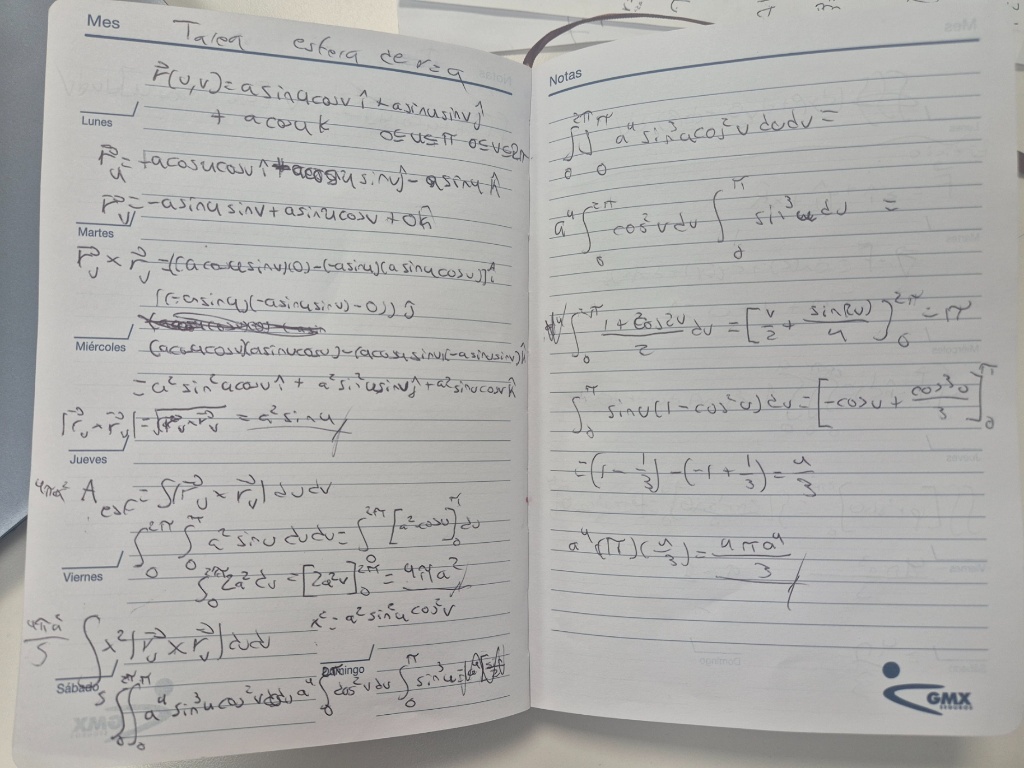 Mes
Tarea esfera de r=a
r⃗(u,v)=a sinu cosv î + a sinu sinv ĵ
+ a cosu k 0≤u≤π 0≤v≤2π
Lunes
r⃗u= +acosucosv î + acosu sinv ĵ - a sinu k̂
r⃗v= -asinu sinv + asinu cosv + 0k̂
Martes
r⃗u × r⃗v = [(acosusinv)(0)-(-asinu)(asinucosv)]î
[(-asinu)(-asinusinv)-0)] ĵ
Miércoles
(acosucosv)(asinucosv)-(acosusinv)(-asinusinv)k̂
= a² sin²ucosv î + a² sin²usinv ĵ + a² sinucosu k̂
|r⃗u × r⃗v| = √(r⃗u × r⃗v) = a² sinu
Jueves
4πa² A esf = ∫|r⃗u × r⃗v| dudv
∫₀^2π ∫₀^π a² sinu dudv = ∫₀^2π [a²cosu]₀^π dv
Viernes
∫₀^2π 2a² dv = [2a²v]₀^2π = 4πa²
x² = a² sin²u cos²v
∫ x² |r⃗u × r⃗v| dudv
Sábado
Domingo
∫₀^2π ∫₀^π a⁴ sin³u cos²v dudv a⁴ ∫₀^2π cos²v dv ∫₀^π sin³u =
GMX
Notas
∫₀^2π ∫₀^π a⁴ sin³u cos²v dudv =
a⁴ ∫₀^2π cos²v dv ∫₀^π sin³u du =
∫₀^2π (1+cos2v)/2 dv = [v/2 + sin(2v)/4]₀^2π = π
∫₀^π sinu(1-cos²u)du = [-cosu + cos³u/3]₀^π
= (1 - 1/3) - (-1 + 1/3) = 4/3
a⁴ (π)(4/3) = 4πa⁴/3
GMX
SEGUROS